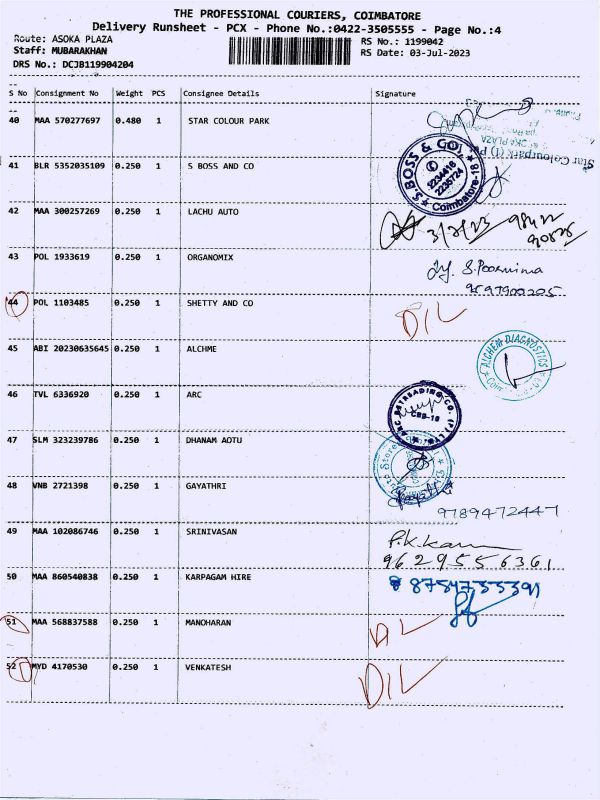 THE PROFESSIONAL COURIERS, COIMBATORE
Delivery Runsheet - PCX - Phone No.:0422-3505555 - Page No.:4
Route: ASOKA PLAZA
RS No.: 1199042
Staff: MUBARAKHAN
RS Date: 03-Jul-2023
DRS No.: DCJB119904204
S No Consignment No Weight PCS Consignee Details Signature
40 MAA 570277697 0.480 1 STAR COLOUR PARK
Star Colourpark (I) P
OKA PLAZA
41 BLR 5352035109 0.250 1 S BOSS AND CO
S.BOSS & CO
2234418
2235724
Coimbatore-18
42 MAA 300257269 0.250 1 LACHU AUTO
3/7/23
43 POL 1933619 0.250 1 ORGANOMIX
S.Poornima
44 POL 1103485 0.250 1 SHETTY AND CO
D/L
45 ABI 20230635645 0.250 1 ALCHME
ALCHEM DIAGNOSTICS
46 TVL 6336920 0.250 1 ARC
CBE-18
47 SLM 323239786 0.250 1 DHANAM AOTU
48 VNB 2721398 0.250 1 GAYATHRI
9789472447
49 MAA 102086746 0.250 1 SRINIVASAN
9629556361
50 MAA 860540838 0.250 1 KARPAGAM HIRE
51 MAA 568837588 0.250 1 MANOHARAN
D/L
52 MYD 4170530 0.250 1 VENKATESH
D/L